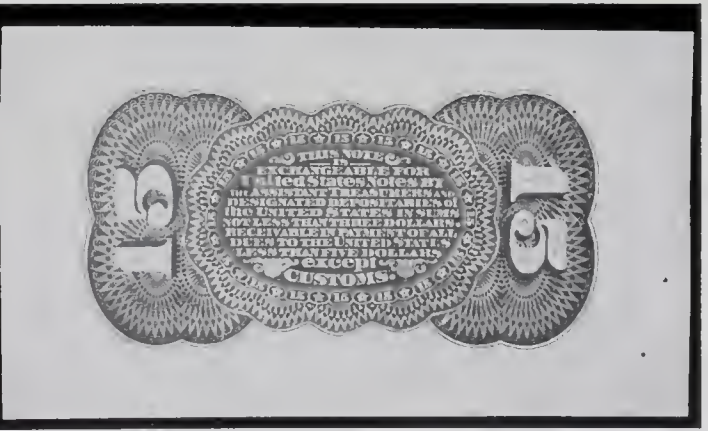 15 15 15 15 15
15
THIS NOTE
IS
EXCHANGEABLE FOR
United States Notes BY
THE ASSISTANT TREASURERS AND
DESIGNATED DEPOSITARIES OF
the UNITED STATES IN SUMS
NOT LESS THAN THREE DOLLARS.
RECEIVABLE IN PAYMENT OF ALL
DUES TO THE UNITED STATES
LESS THAN FIVE DOLLARS
except
CUSTOMS.
15
15 15 15 15 15